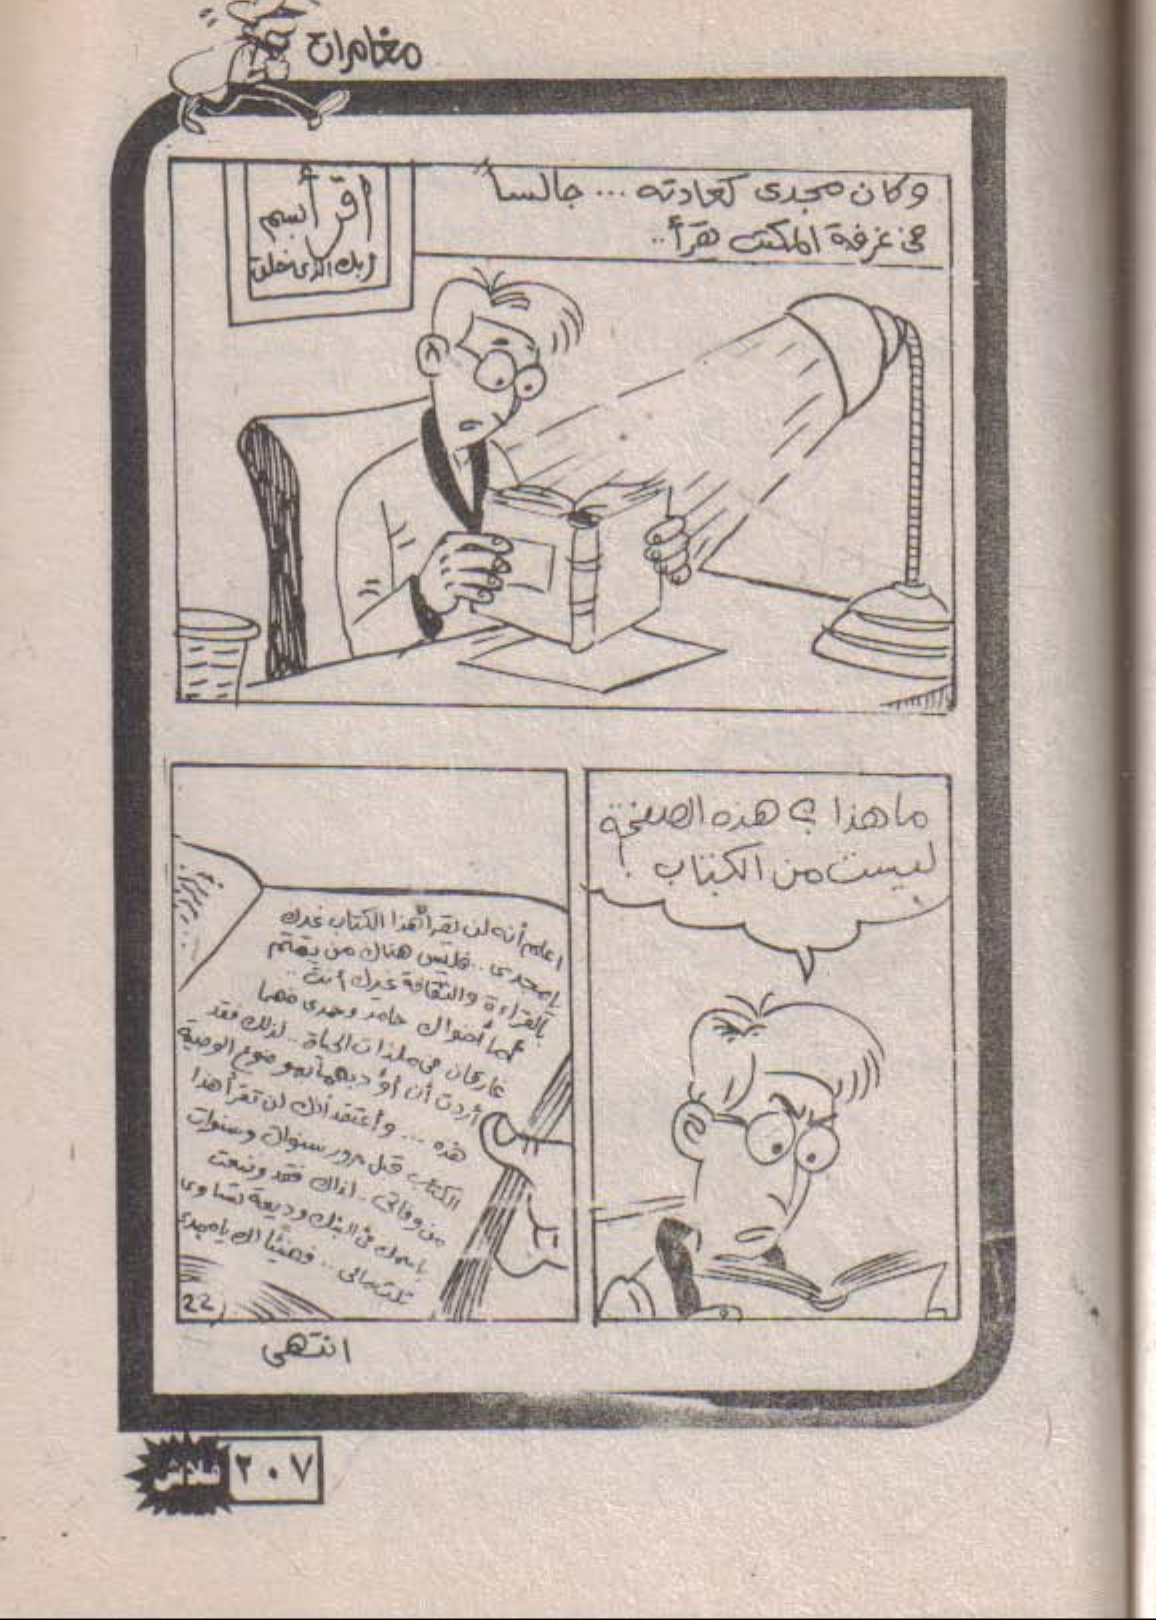 مغامرات
وكان مجدى كعادته ... جالساً
فى غرفة المكتب يقرأ..
اقرأ بسم
ربك الذى خلق
ما هذا ؟ هذه الصفحة
ليست من الكتاب !
اعلم أنه لن يقرأ هذا الكتاب غيرك
يا مجدى .. فليس هناك من يهتم
بالقراءة والثقافة غيرك أنت ..
أما أخواك حامد وحمدى فهما
غارقان فى ملذات الحياة .. لذلك فقد
أردت أن أؤدبهما بموضوع الوصية
هذه ... وأعتقد أنك لن تقرأ هذا
الكتاب قبل مرور سنوات وسنوات
من وفاتى .. لذلك فقد وضعت
باسمك فى البنك وديعة تساوى
ثلث مالى ... فهنيئاً لك يا مجدى
22
انتهى
فلاش
٢٠٧